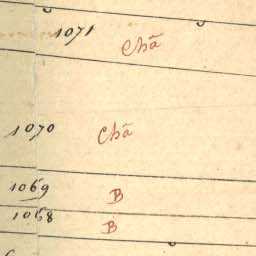 1071 Chã
1070 Chã
1069 B
1068 B